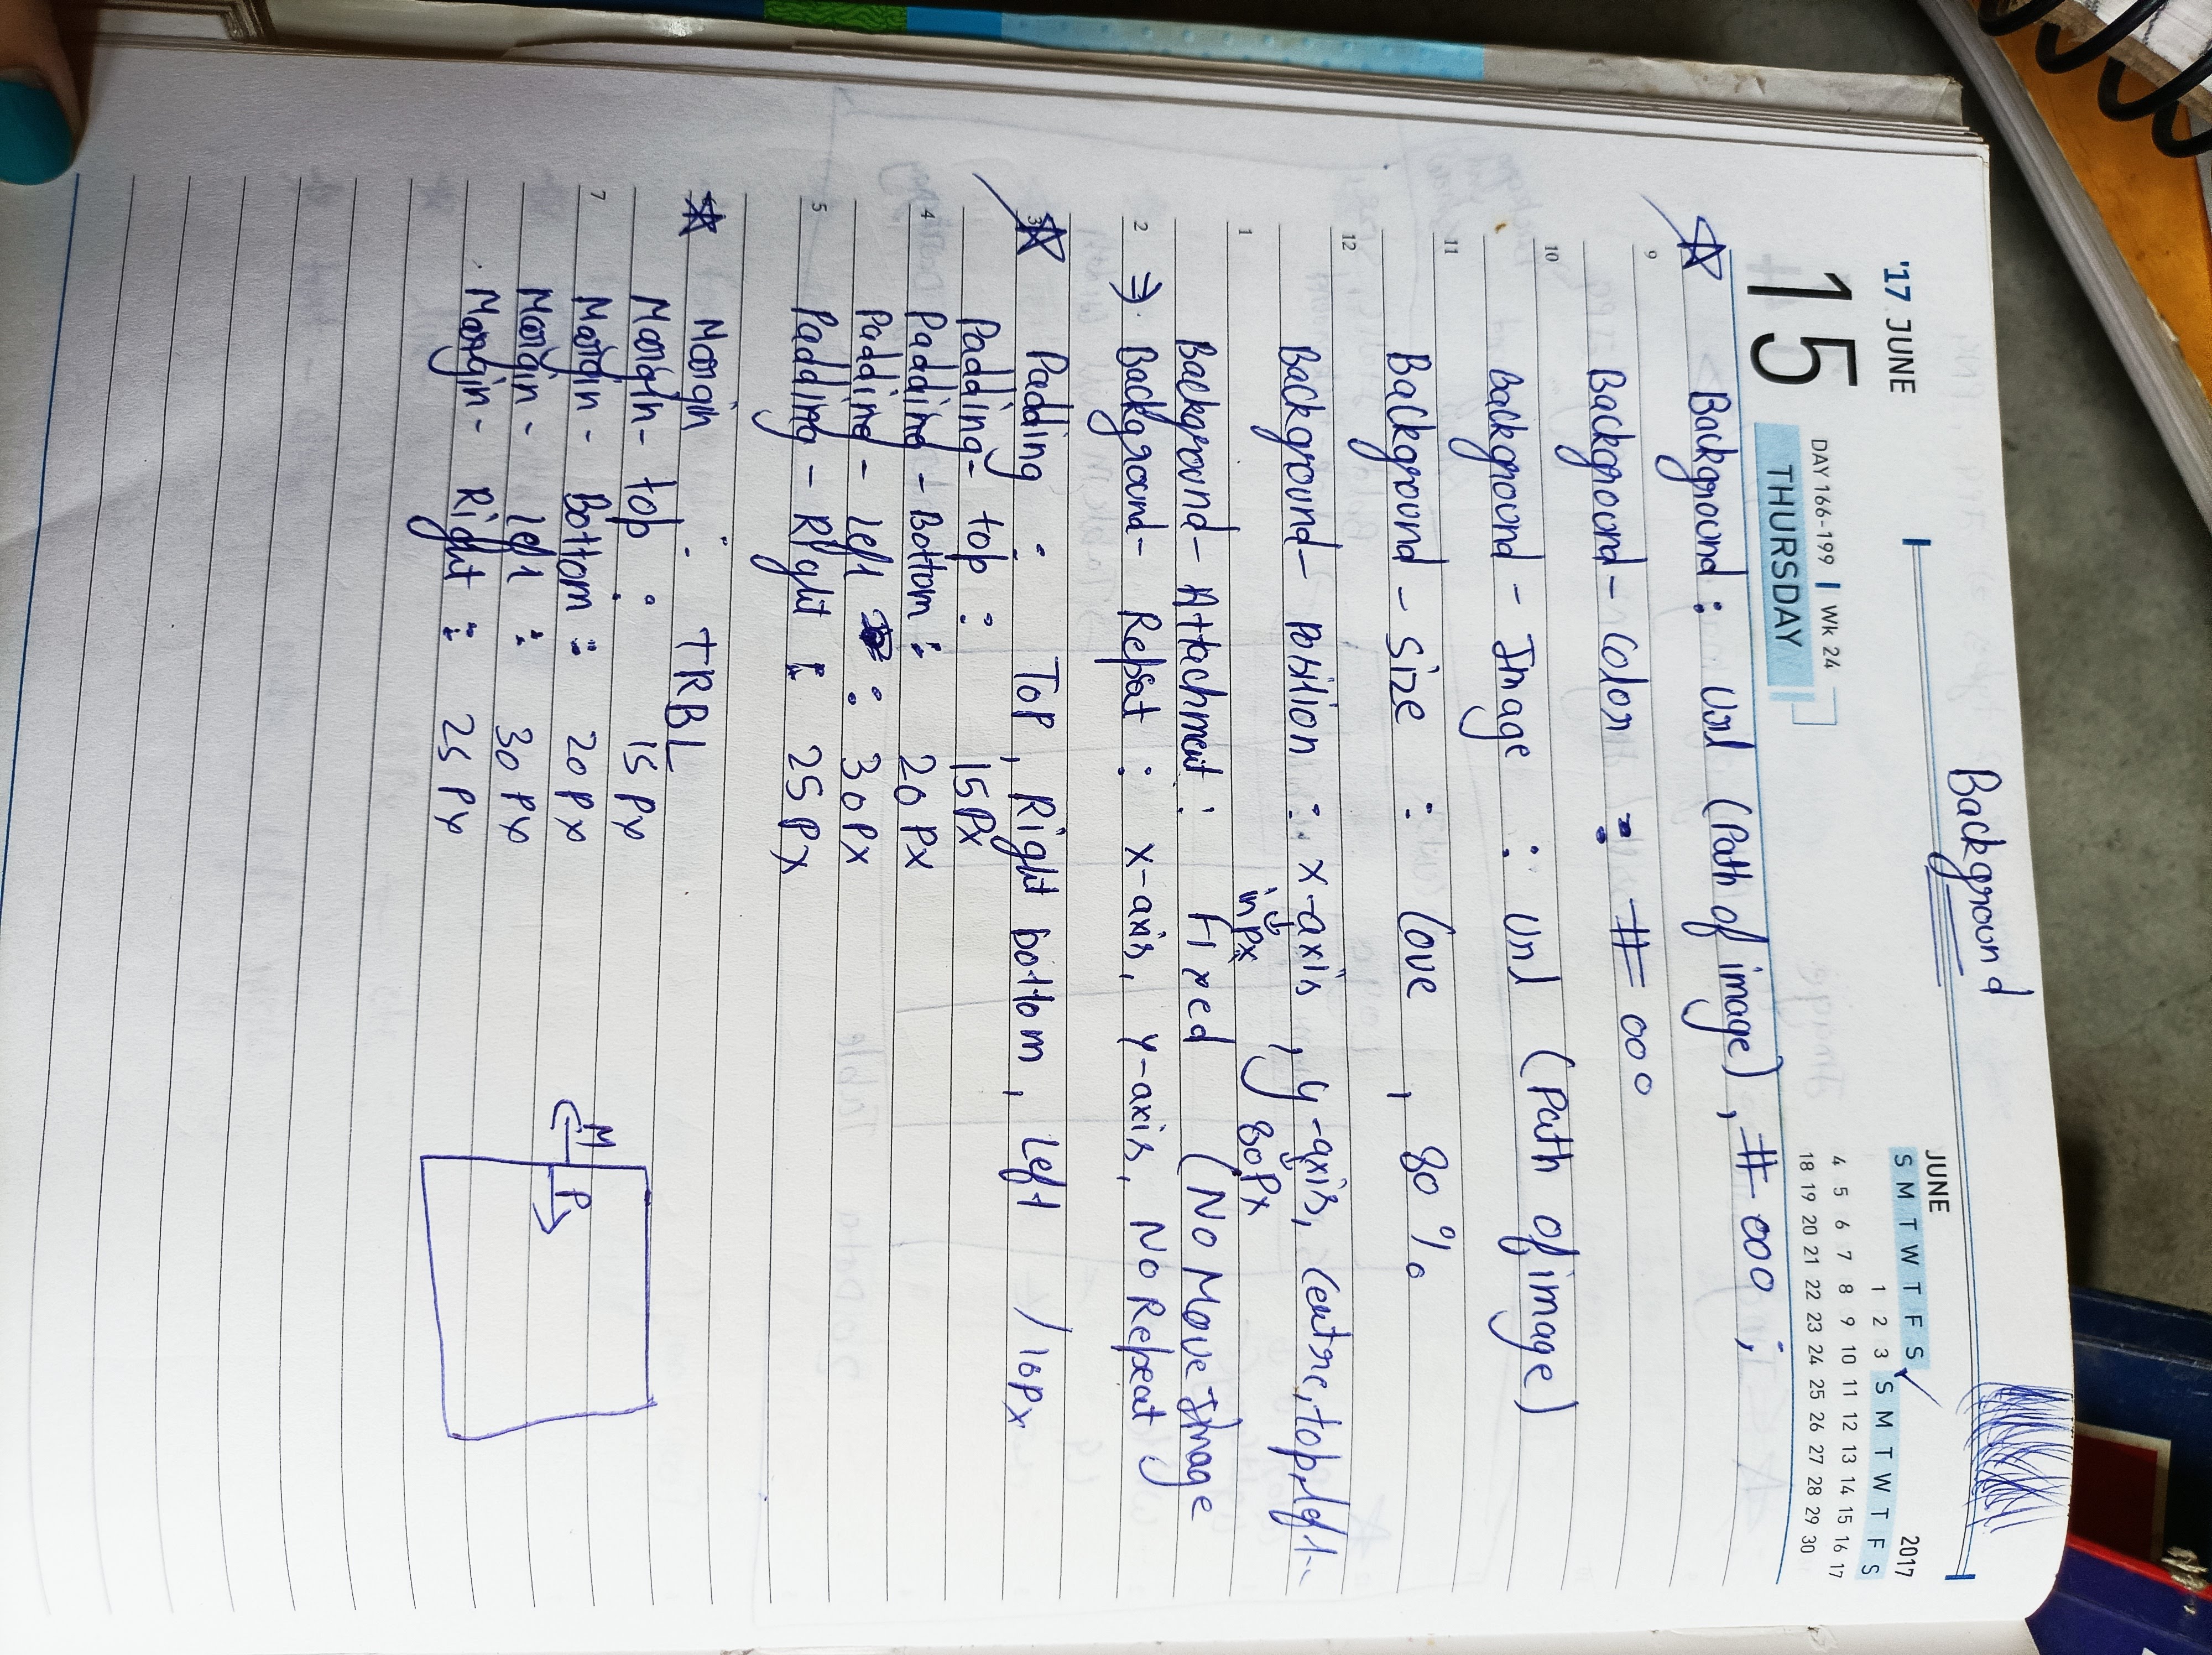 Background
'17 JUNE
15
DAY 166-199 | Wk 24
THURSDAY
JUNE
2017
S M T W T F S
1 2 3 S M T W T F S
4 5 6 7 8 9 10 11 12 13 14 15 16 17
18 19 20 21 22 23 24 25 26 27 28 29 30
Background : Url (Path of image) , # 000 ;
9
Background - Color : # 000
10
Background - Image : Url (Path of image)
11
Background - Size : Cove , 80 %
12
Background - Position : x-axis , y-axis, Centre, top, left..
in Px 80Px
1
Background - Attachment : Fixed (No Move Image
2 ⇒ Background - Repeat : x-axis, y-axis, No Repeat
3 Padding : Top , Right bottom , Left / 10Px
Padding - top : 15Px
4 Padding - Bottom : 20 Px
Padding - Left : 30Px
5 Padding - Right : 25 Px
Margin : TRBL
Margin - top : 15 Px
7 Margin - Bottom : 20 Px
Margin - Left : 30 Px
Margin - Right : 25 Px
M
P